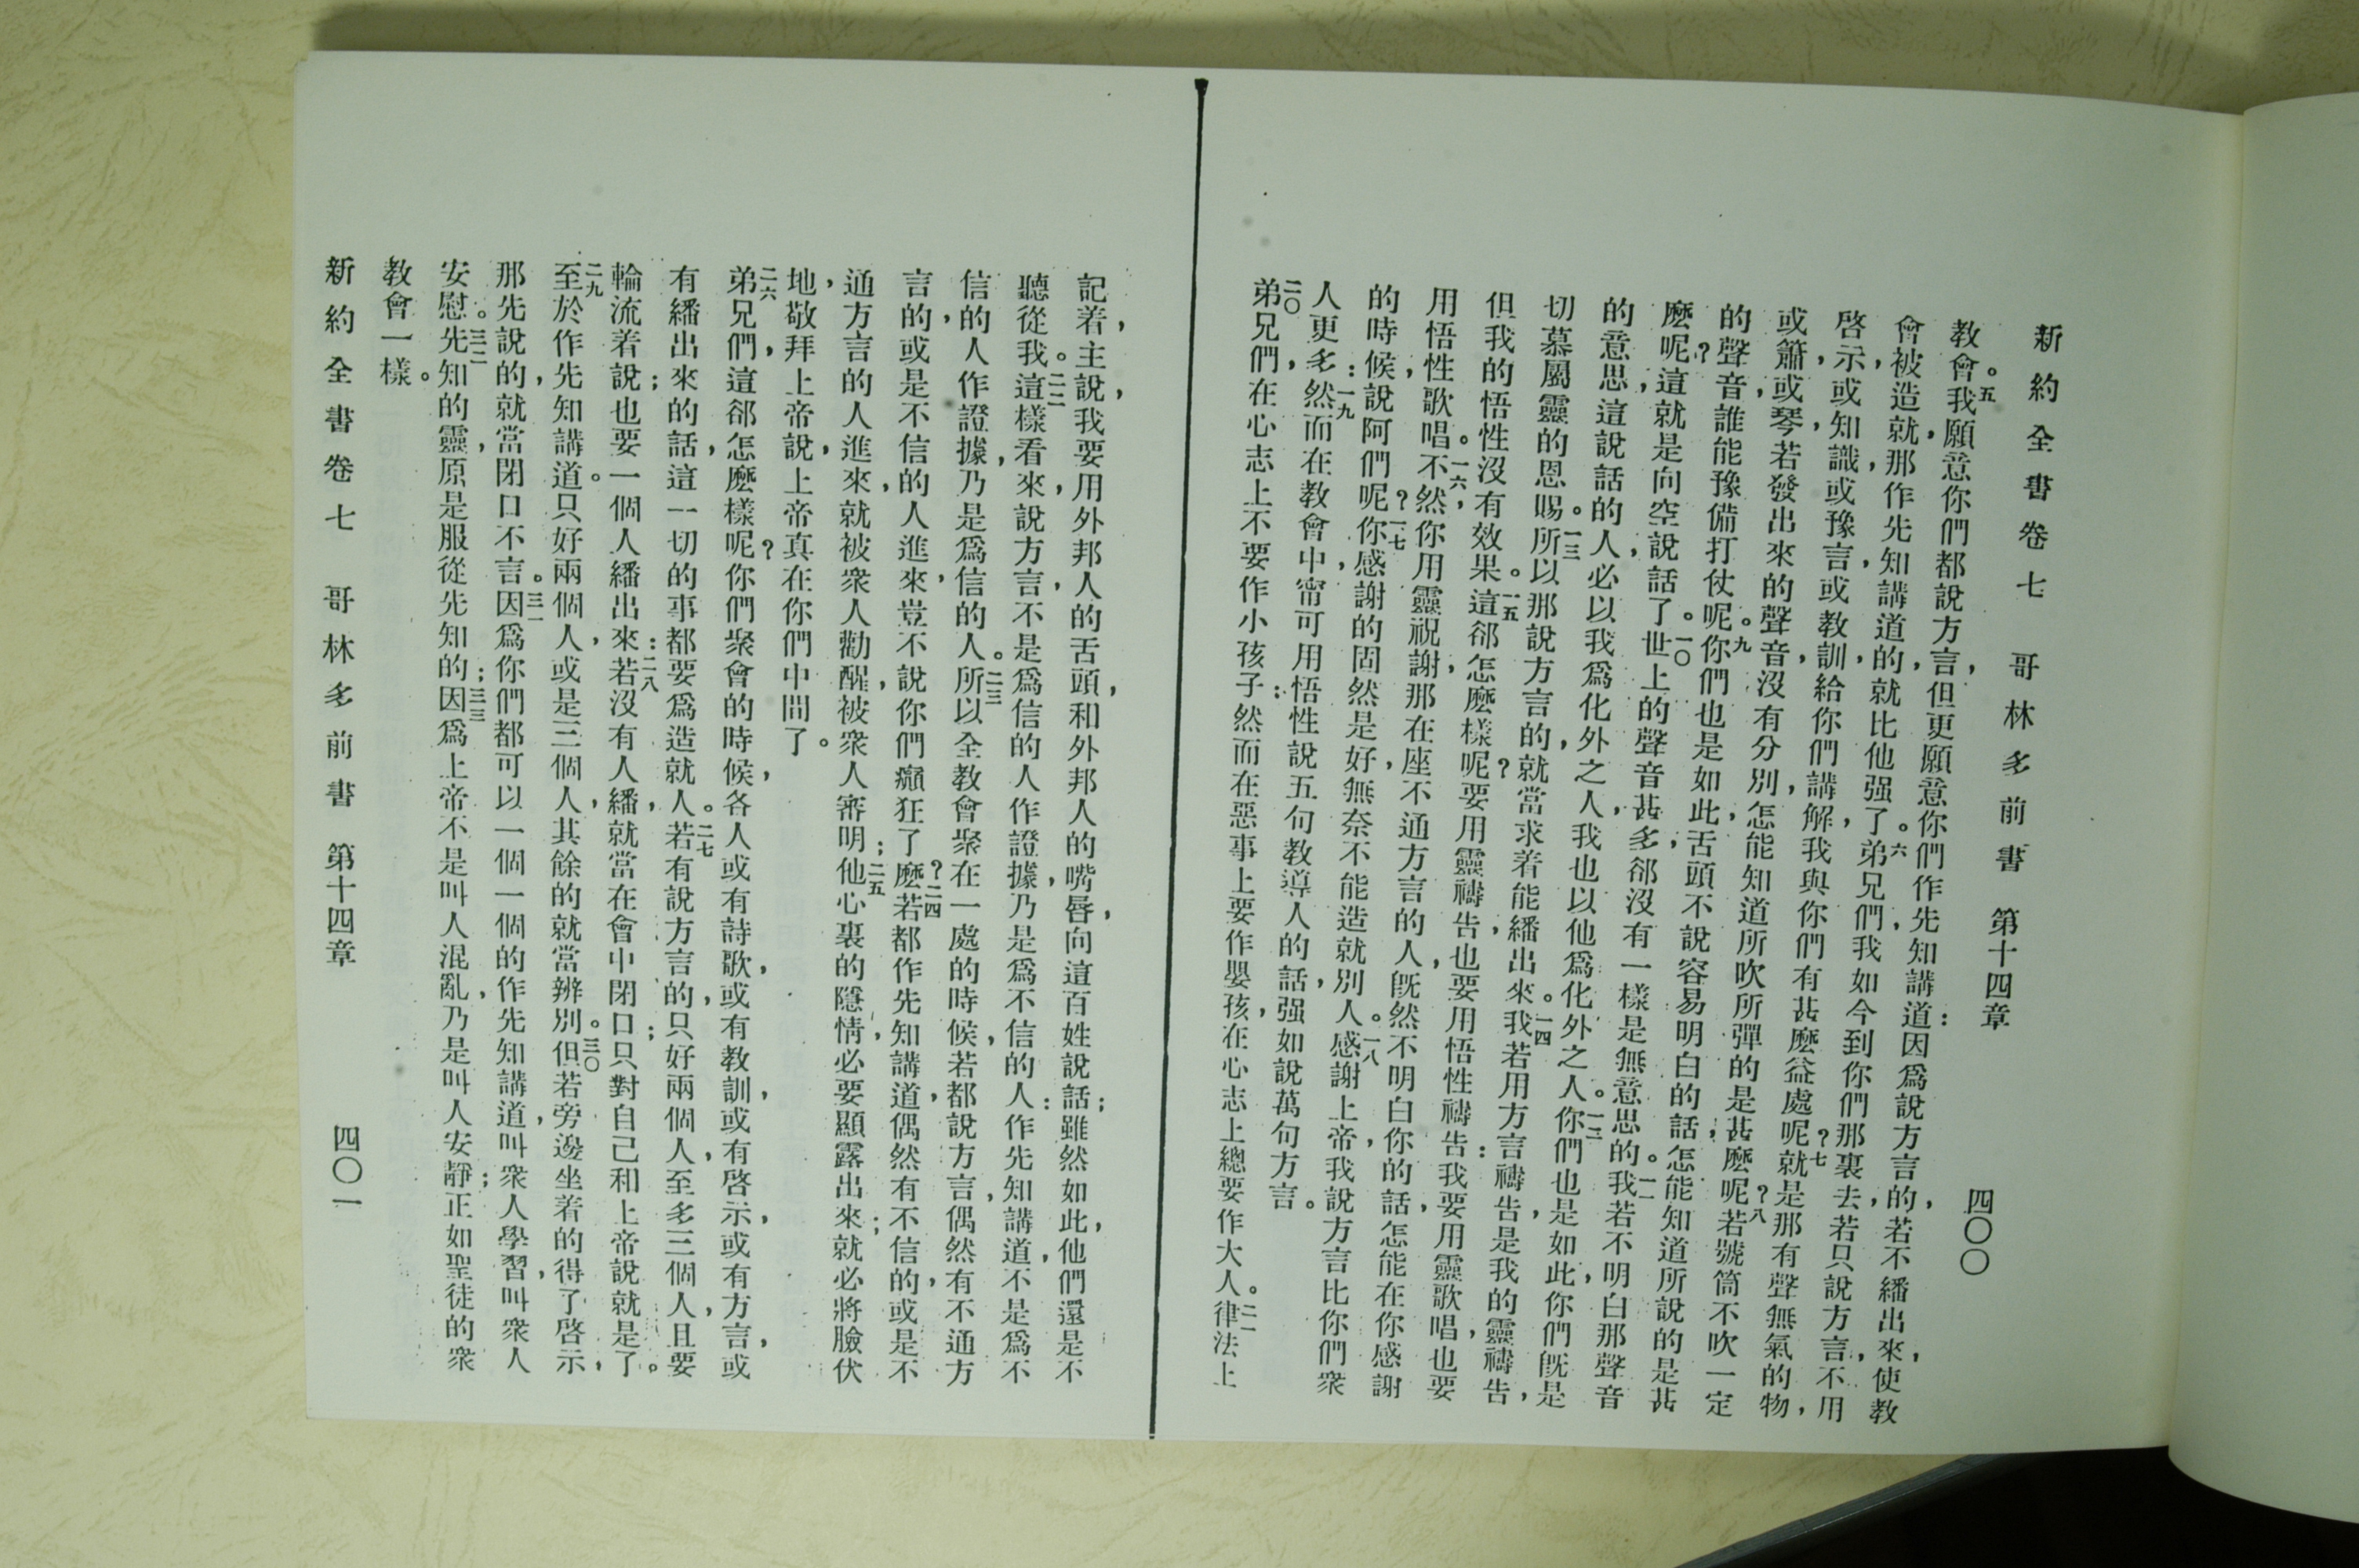 新約全書卷七　哥林多前書　第十四章　四〇〇
教會。五我願意你們都說方言，但更願意你們作先知講道：因爲說方言的，若不繙出來，使教
會，被造就，那作先知講道的，就比他强了。六弟兄們，我如今到你們那裏去，若只說方言，不用
啓示，或知識，或豫言，或教訓，給你們講解，我與你們有甚麼益處呢？七就是那有聲無氣的物，
或簫，或琴，若發出來的聲音，沒有分別，怎能知道所吹所彈的是甚麼呢？八若號筒不吹一定
的聲音，誰能豫備打仗呢。九你們也是如此，舌頭不說容易明白的話，怎能知道所說的是甚
麼呢？這就是向空說話了。一〇世上的聲音甚多，郤沒有一樣是無意思的。一一我若不明白那聲音
的意思，這說話的人，必以我爲化外之人，我也以他爲化外之人。一二你們也是如此，你們旣是
切慕屬靈的恩賜。一三所以那說方言的，就當求着能繙出來。一四我若用方言禱告，是我的靈禱告，
但我的悟性沒有效果。一五這郤怎麼樣呢？要用靈禱告，也要用悟性禱告：我要用靈歌唱，也要
用悟性歌唱。一六不然，你用靈祝謝，那在座不通方言的人，旣然不明白你的話，怎能在你感謝
的時候，說阿們呢？一七你感謝的固然是好，無奈不能造就別人。一八感謝上帝，我說方言比你們衆
人更多：一九然而在教會中，甯可用悟性說五句教導人的話，强如說萬句方言。
二〇弟兄們，在心志上不要作小孩子：然而在惡事上要作嬰孩，在心志上總要作大人。二一律法上
記着，主說，我要用外邦人的舌頭，和外邦人的嘴唇，向這百姓說話；雖然如此，他們還是不
聽從我。二二這樣看來，說方言，不是爲信的人作證據，乃是爲不信的人：作先知講道，不是爲不
信的人作證據，乃是爲信的人。二三所以全教會聚在一處的時候，若都說方言，偶然有不通方
言的，或是不信的人進來，豈不說你們癲狂了麼？二四若都作先知講道，偶然有不信的，或是不
通方言的人進來，就被衆人勸醒，被衆人審明；二五他心裏的隱情，必要顯露出來；就必將臉伏
地，敬拜上帝，說上帝真在你們中間了。
二六弟兄們，這郤怎麼樣呢？你們聚會的時候，各人或有詩歌，或有教訓，或有啓示，或有方言，或
有繙出來的話，這一切的事都要爲造就人。二七若有說方言的，只好兩個人，至多三個人，且要
輪流着說；也要一個人繙出來：二八若沒有人繙，就當在會中閉口；只對自己和上帝說就是了。
二九至於作先知講道。只好兩個人，或是三個人，其餘的就當辨別。三〇但若旁邊坐着的得了啓示，
那先說的，就當閉口不言。三一因爲你們都可以一個一個的作先知講道，叫衆人學習，叫衆人
安慰。三二先知的靈，原是服從先知的；三三因爲上帝不是叫人混亂，乃是叫人安靜；正如聖徒的衆
教會一樣。
新約全書卷七　哥林多前書　第十四章　四〇一